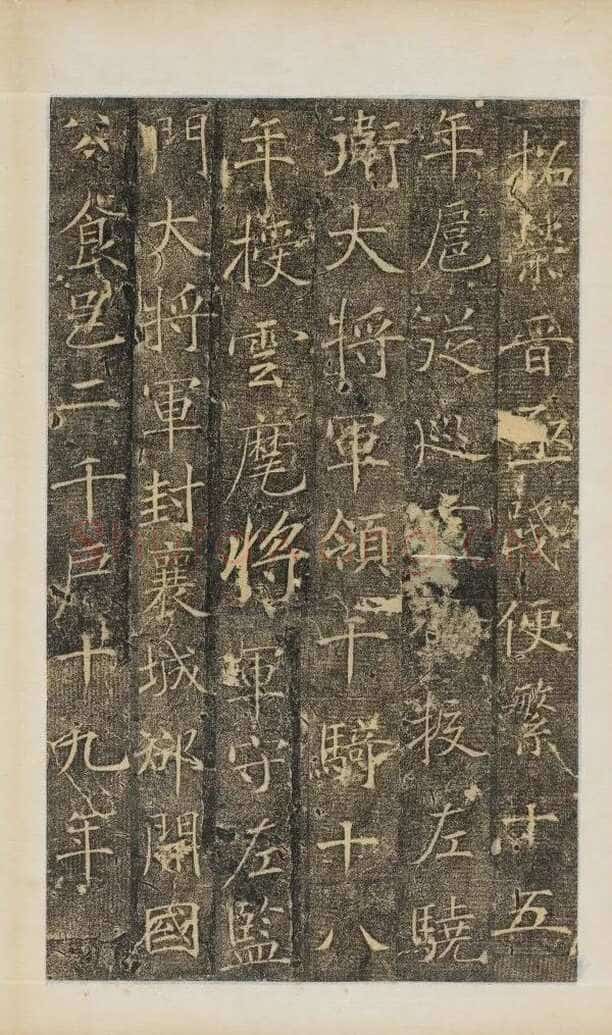 晋 便繁十五
年扈從巡 授左驍
衛大將軍領千騎十八
年授雲麾將軍守左監
門大將軍封襄城郡開國
公食邑二千戶十九年